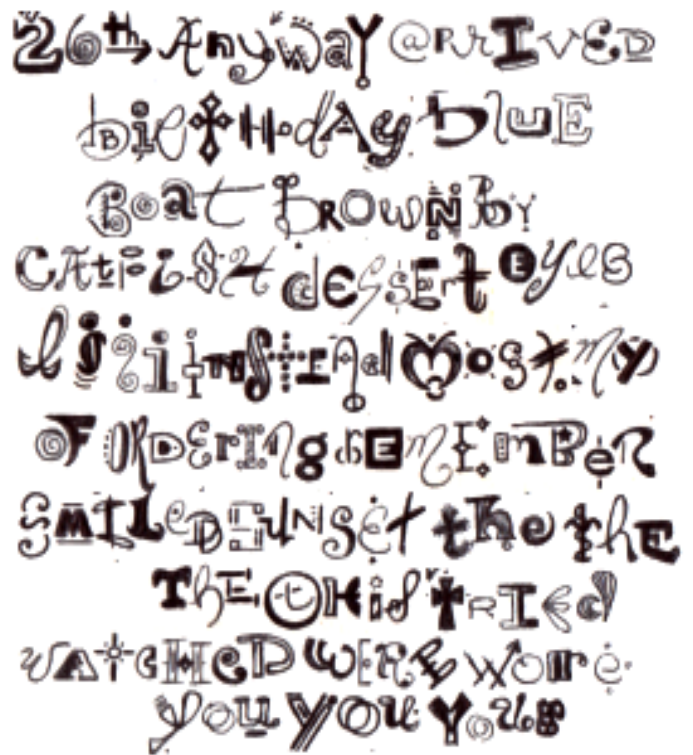 26th Anyway @rrived
birthday blue
Boat brown by
catfish dessert eyes
I i i i instead most my
of ordering remember
smiled sunset the the
the this tried
watched were wore
you you your